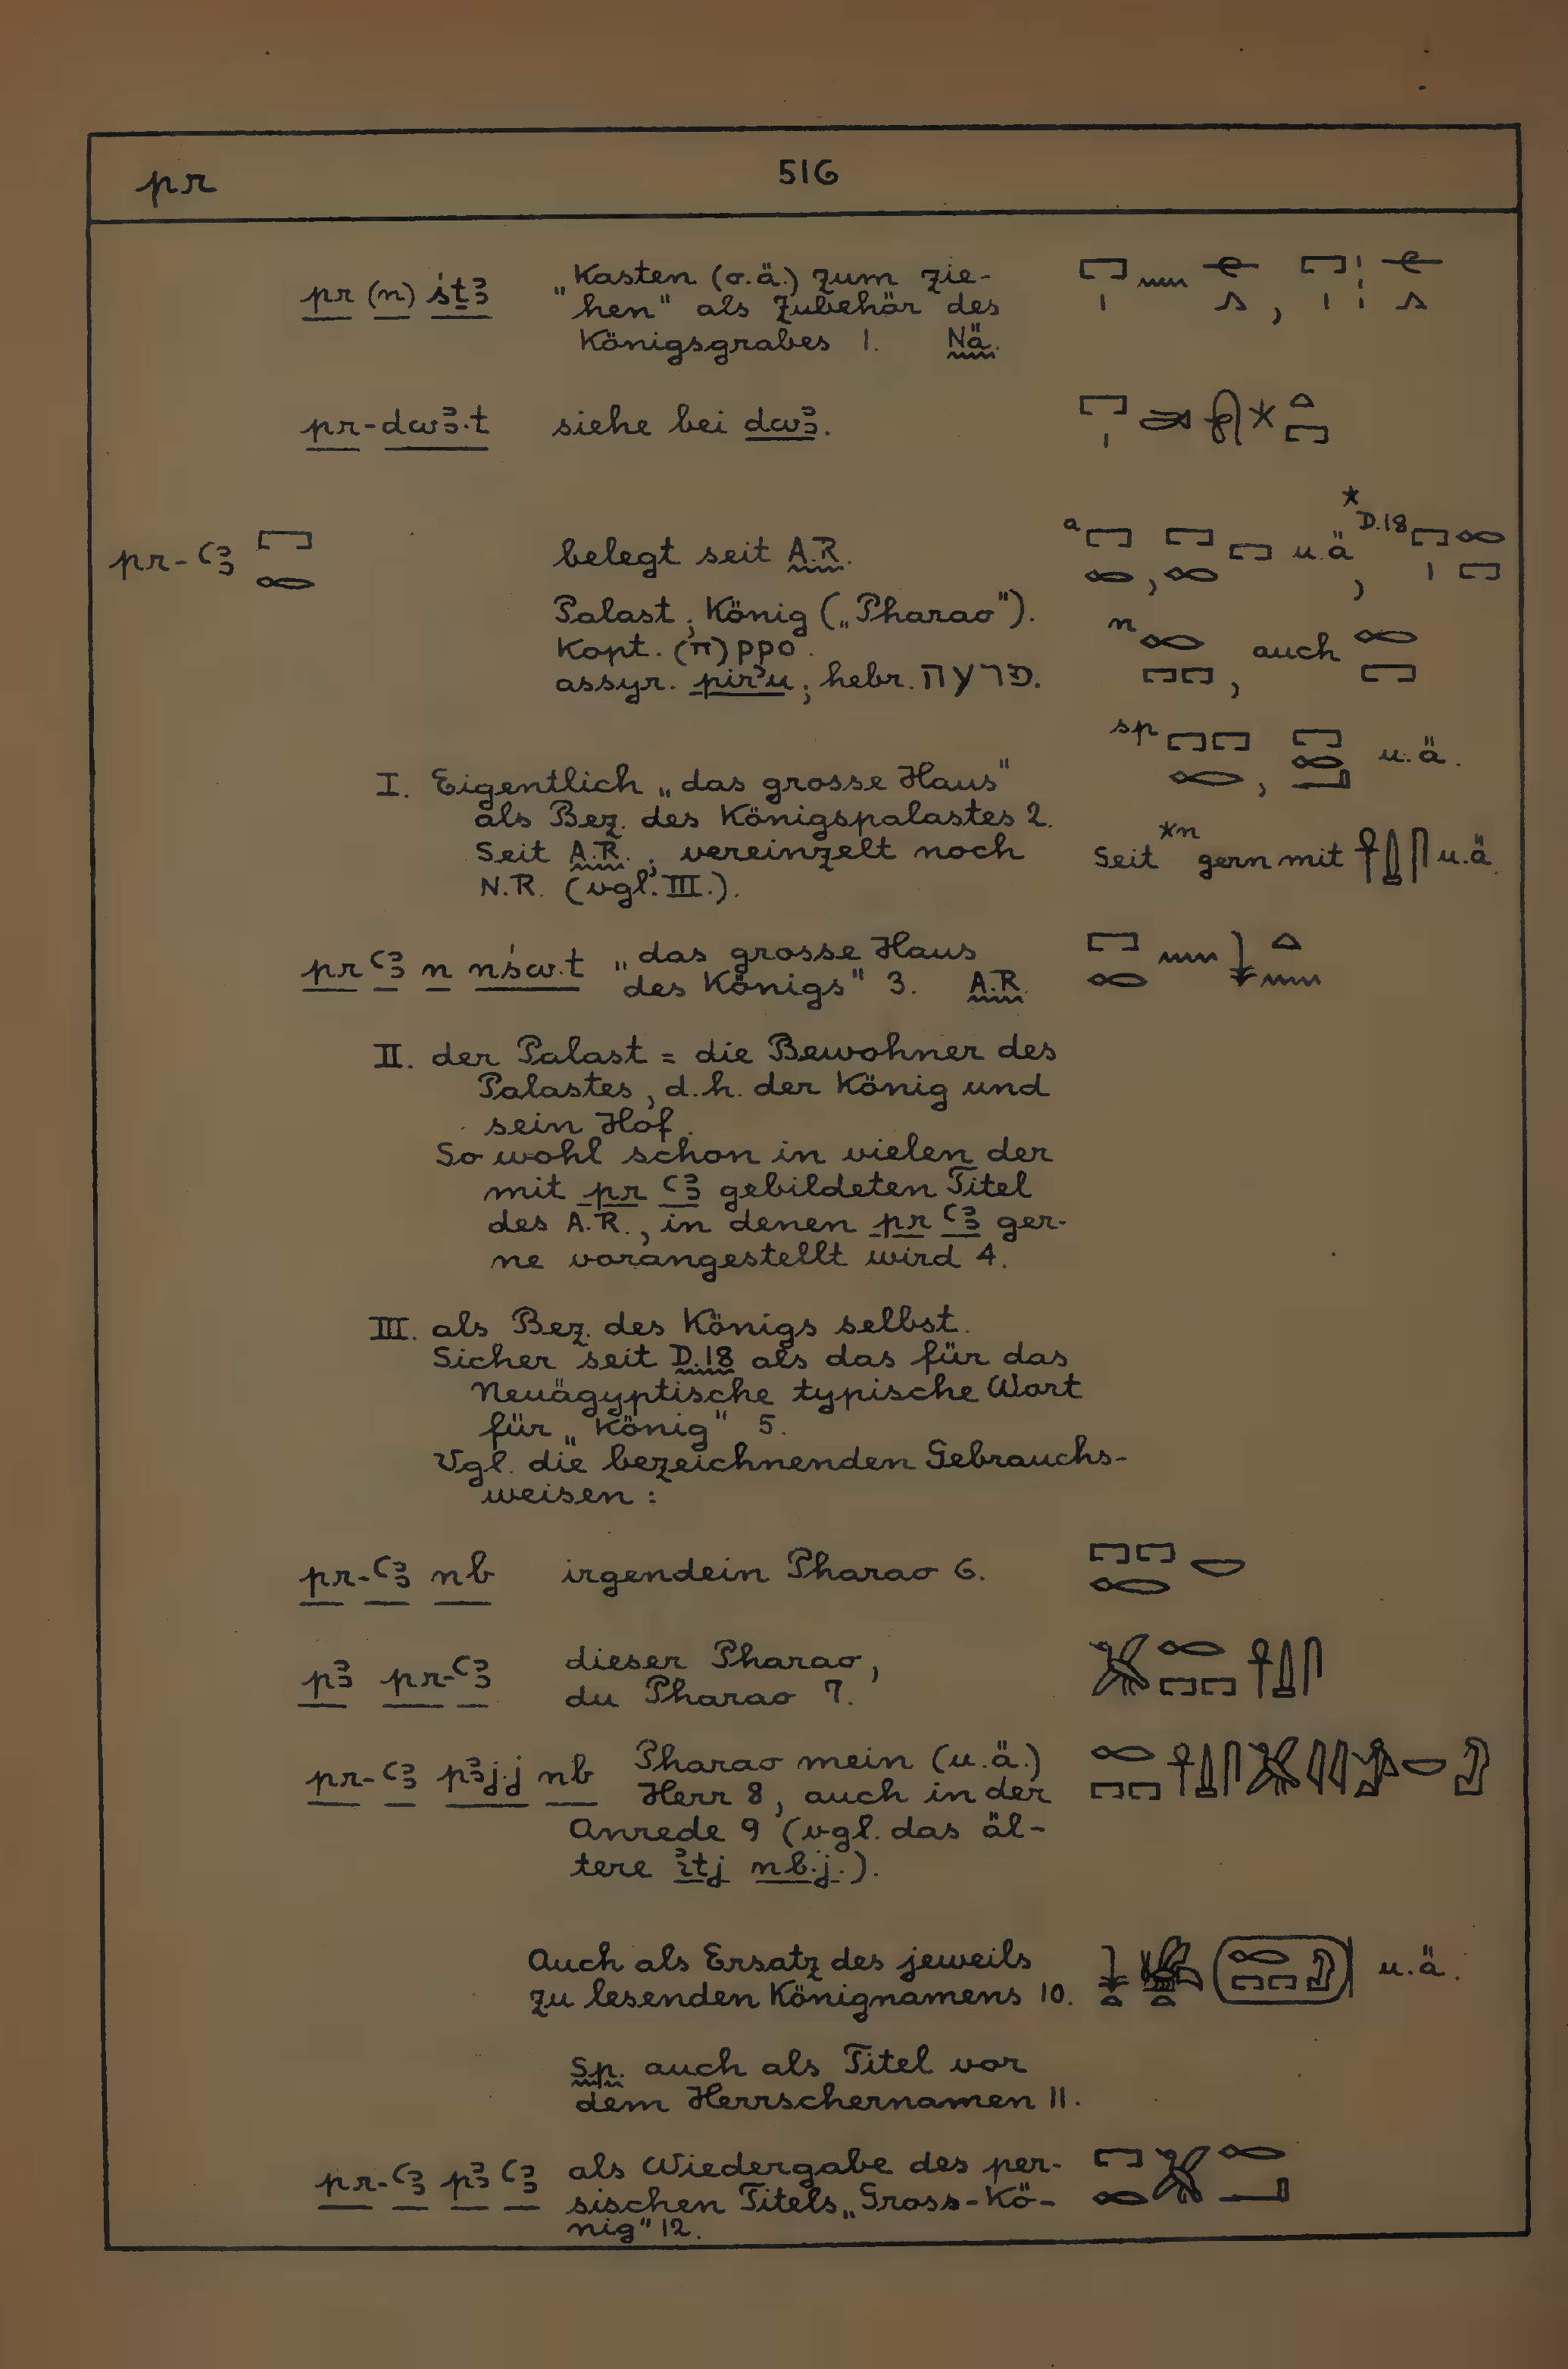 pr 516
pr (n) śṯꜣ „Kasten (o.ä.) zum zie-
hen" als Zubehör des
Königsgrabes 1. Nä.
pr-dwꜣ.t siehe bei dwꜣ.
pr-ꜥꜣ 𓉐𓉻 belegt seit A.R. a 𓉐𓉻, 𓉐𓉻𓉐 u.ä., * D.18 𓉐𓏤𓉻𓉐
Palast; König („Pharao"). n 𓉻𓉐𓉐, auch 𓉻𓉐
Kopt. (π)ρρο.
assyr. pirʾu; hebr. פרעה.
sp 𓉐𓉐𓉻, 𓉐𓉻𓂝 u.ä.
I. Eigentlich „das grosse Haus"
als Bez. des Königspalastes 2.
Seit A.R.; vereinzelt noch Seit *n gern mit 𓋹𓍑𓋴 u.ä.
N.R. (vgl. III.).
pr ꜥꜣ n nśw.t „das grosse Haus
des Königs" 3. A.R.
II. der Palast = die Bewohner des
Palastes, d.h. der König und
sein Hof.
So wohl schon in vielen der
mit pr ꜥꜣ gebildeten Titel
des A.R., in denen pr ꜥꜣ ger-
ne vorangestellt wird 4.
III. als Bez. des Königs selbst.
Sicher seit D.18 als das für das
Neuägyptische typische Wort
für „König" 5.
Vgl. die bezeichnenden Gebrauchs-
weisen:
pr-ꜥꜣ nb irgendein Pharao 6. 𓉐𓉐𓉻𓎟
pꜣ pr-ꜥꜣ dieser Pharao, 𓅮𓉻𓉐𓉐𓋹𓍑𓋴
du Pharao 7.
pr-ꜥꜣ pꜣj.j nb Pharao mein (u.ä.)
Herr 8, auch in der
Anrede 9 (vgl. das äl-
tere ꞽtj nb.j.).
Auch als Ersatz des jeweils
zu lesenden Könignamens 10. u.ä.
Sp. auch als Titel vor
dem Herrschernamen 11.
pr-ꜥꜣ pꜣ ꜥꜣ als Wiedergabe des per- 𓉐𓉻𓅮𓉻𓂝
sischen Titels „Gross-Kö-
nig" 12.